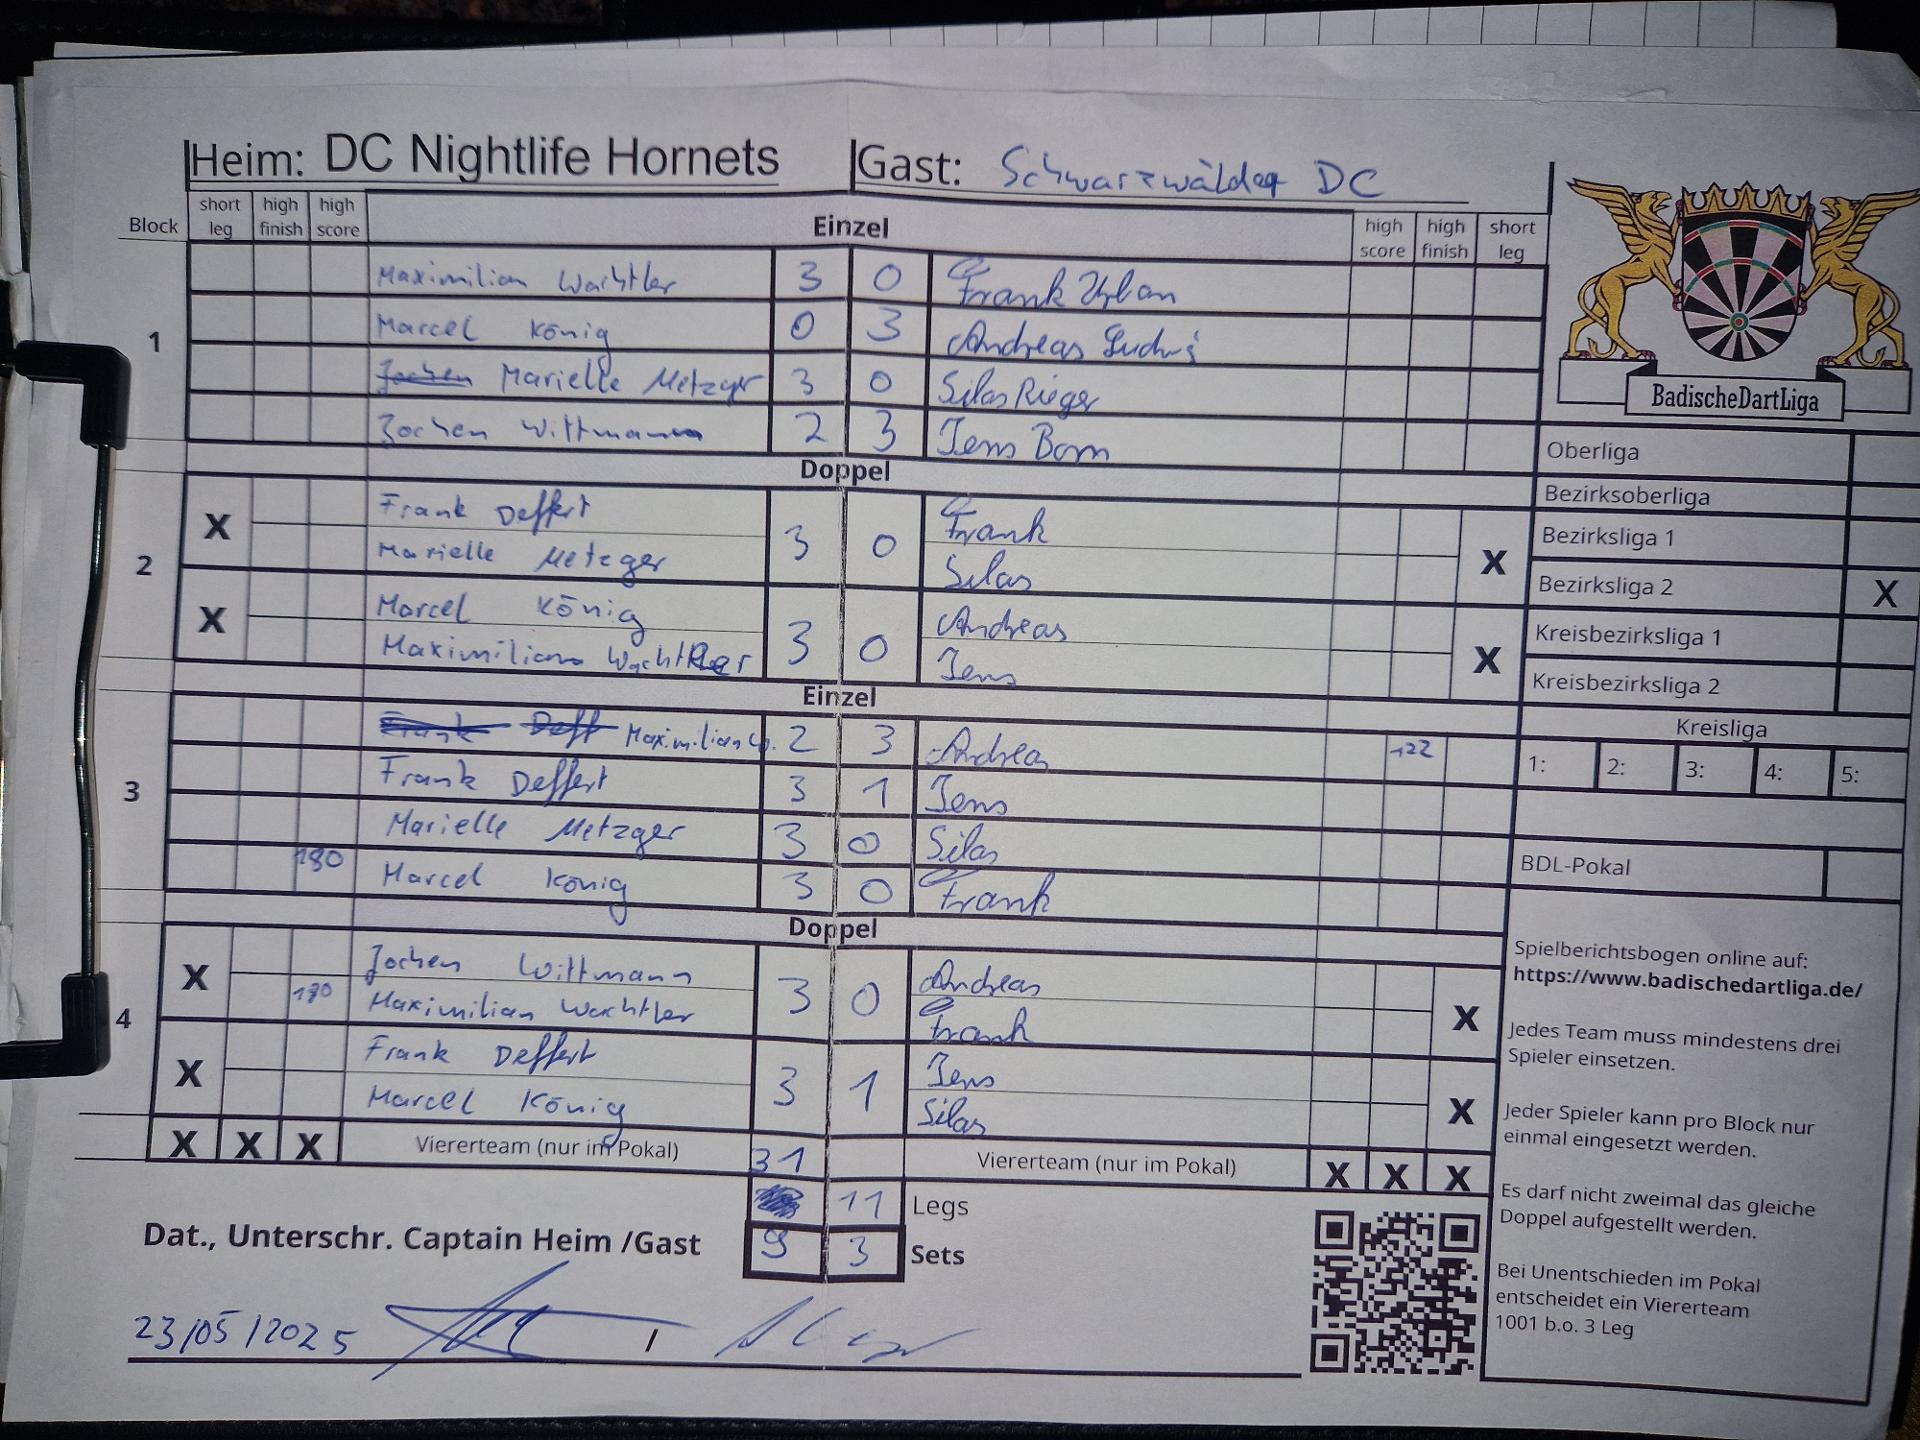 Heim: DC Nightlife Hornets Gast: Schwarzwälder DC
Block short leg high finish high score Einzel high score high finish short leg
1
Maximilian Wachtler 3 0 Frank
Marcel König 0 3 Andreas Ludwig
Jochen Marielle Metzger 3 0 Silas Rieger
Jochen Wittmann 2 3 Jens Born
Doppel
2
X Frank Deffert 3 0 Frank X
Marielle Metzger Silas
X Marcel König 3 0 Andreas X
Maximilian Wachtler Jens
Einzel
3
Frank Deff Maximilian W. 2 3 Andreas 122
Frank Deffert 3 1 Jens
Marielle Metzger 3 0 Silas
180 Marcel König 3 0 Frank
Doppel
4
X Jochen Wittmann 3 0 Andreas X
180 Maximilian Wachtler Frank
X Frank Deffert 3 1 Jens X
Marcel König Silas
X X X Viererteam (nur im Pokal) 31 Viererteam (nur im Pokal) X X X
11 Legs
9 3 Sets
Dat., Unterschr. Captain Heim /Gast
23/05/2025 /
BadischeDartLiga
Oberliga
Bezirksoberliga
Bezirksliga 1
Bezirksliga 2 X
Kreisbezirksliga 1
Kreisbezirksliga 2
Kreisliga
1: 2: 3: 4: 5:
BDL-Pokal
Spielberichtsbogen online auf:
https://www.badischedartliga.de/
Jedes Team muss mindestens drei
Spieler einsetzen.
Jeder Spieler kann pro Block nur
einmal eingesetzt werden.
Es darf nicht zweimal das gleiche
Doppel aufgestellt werden.
Bei Unentschieden im Pokal
entscheidet ein Viererteam
1001 b.o. 3 Leg